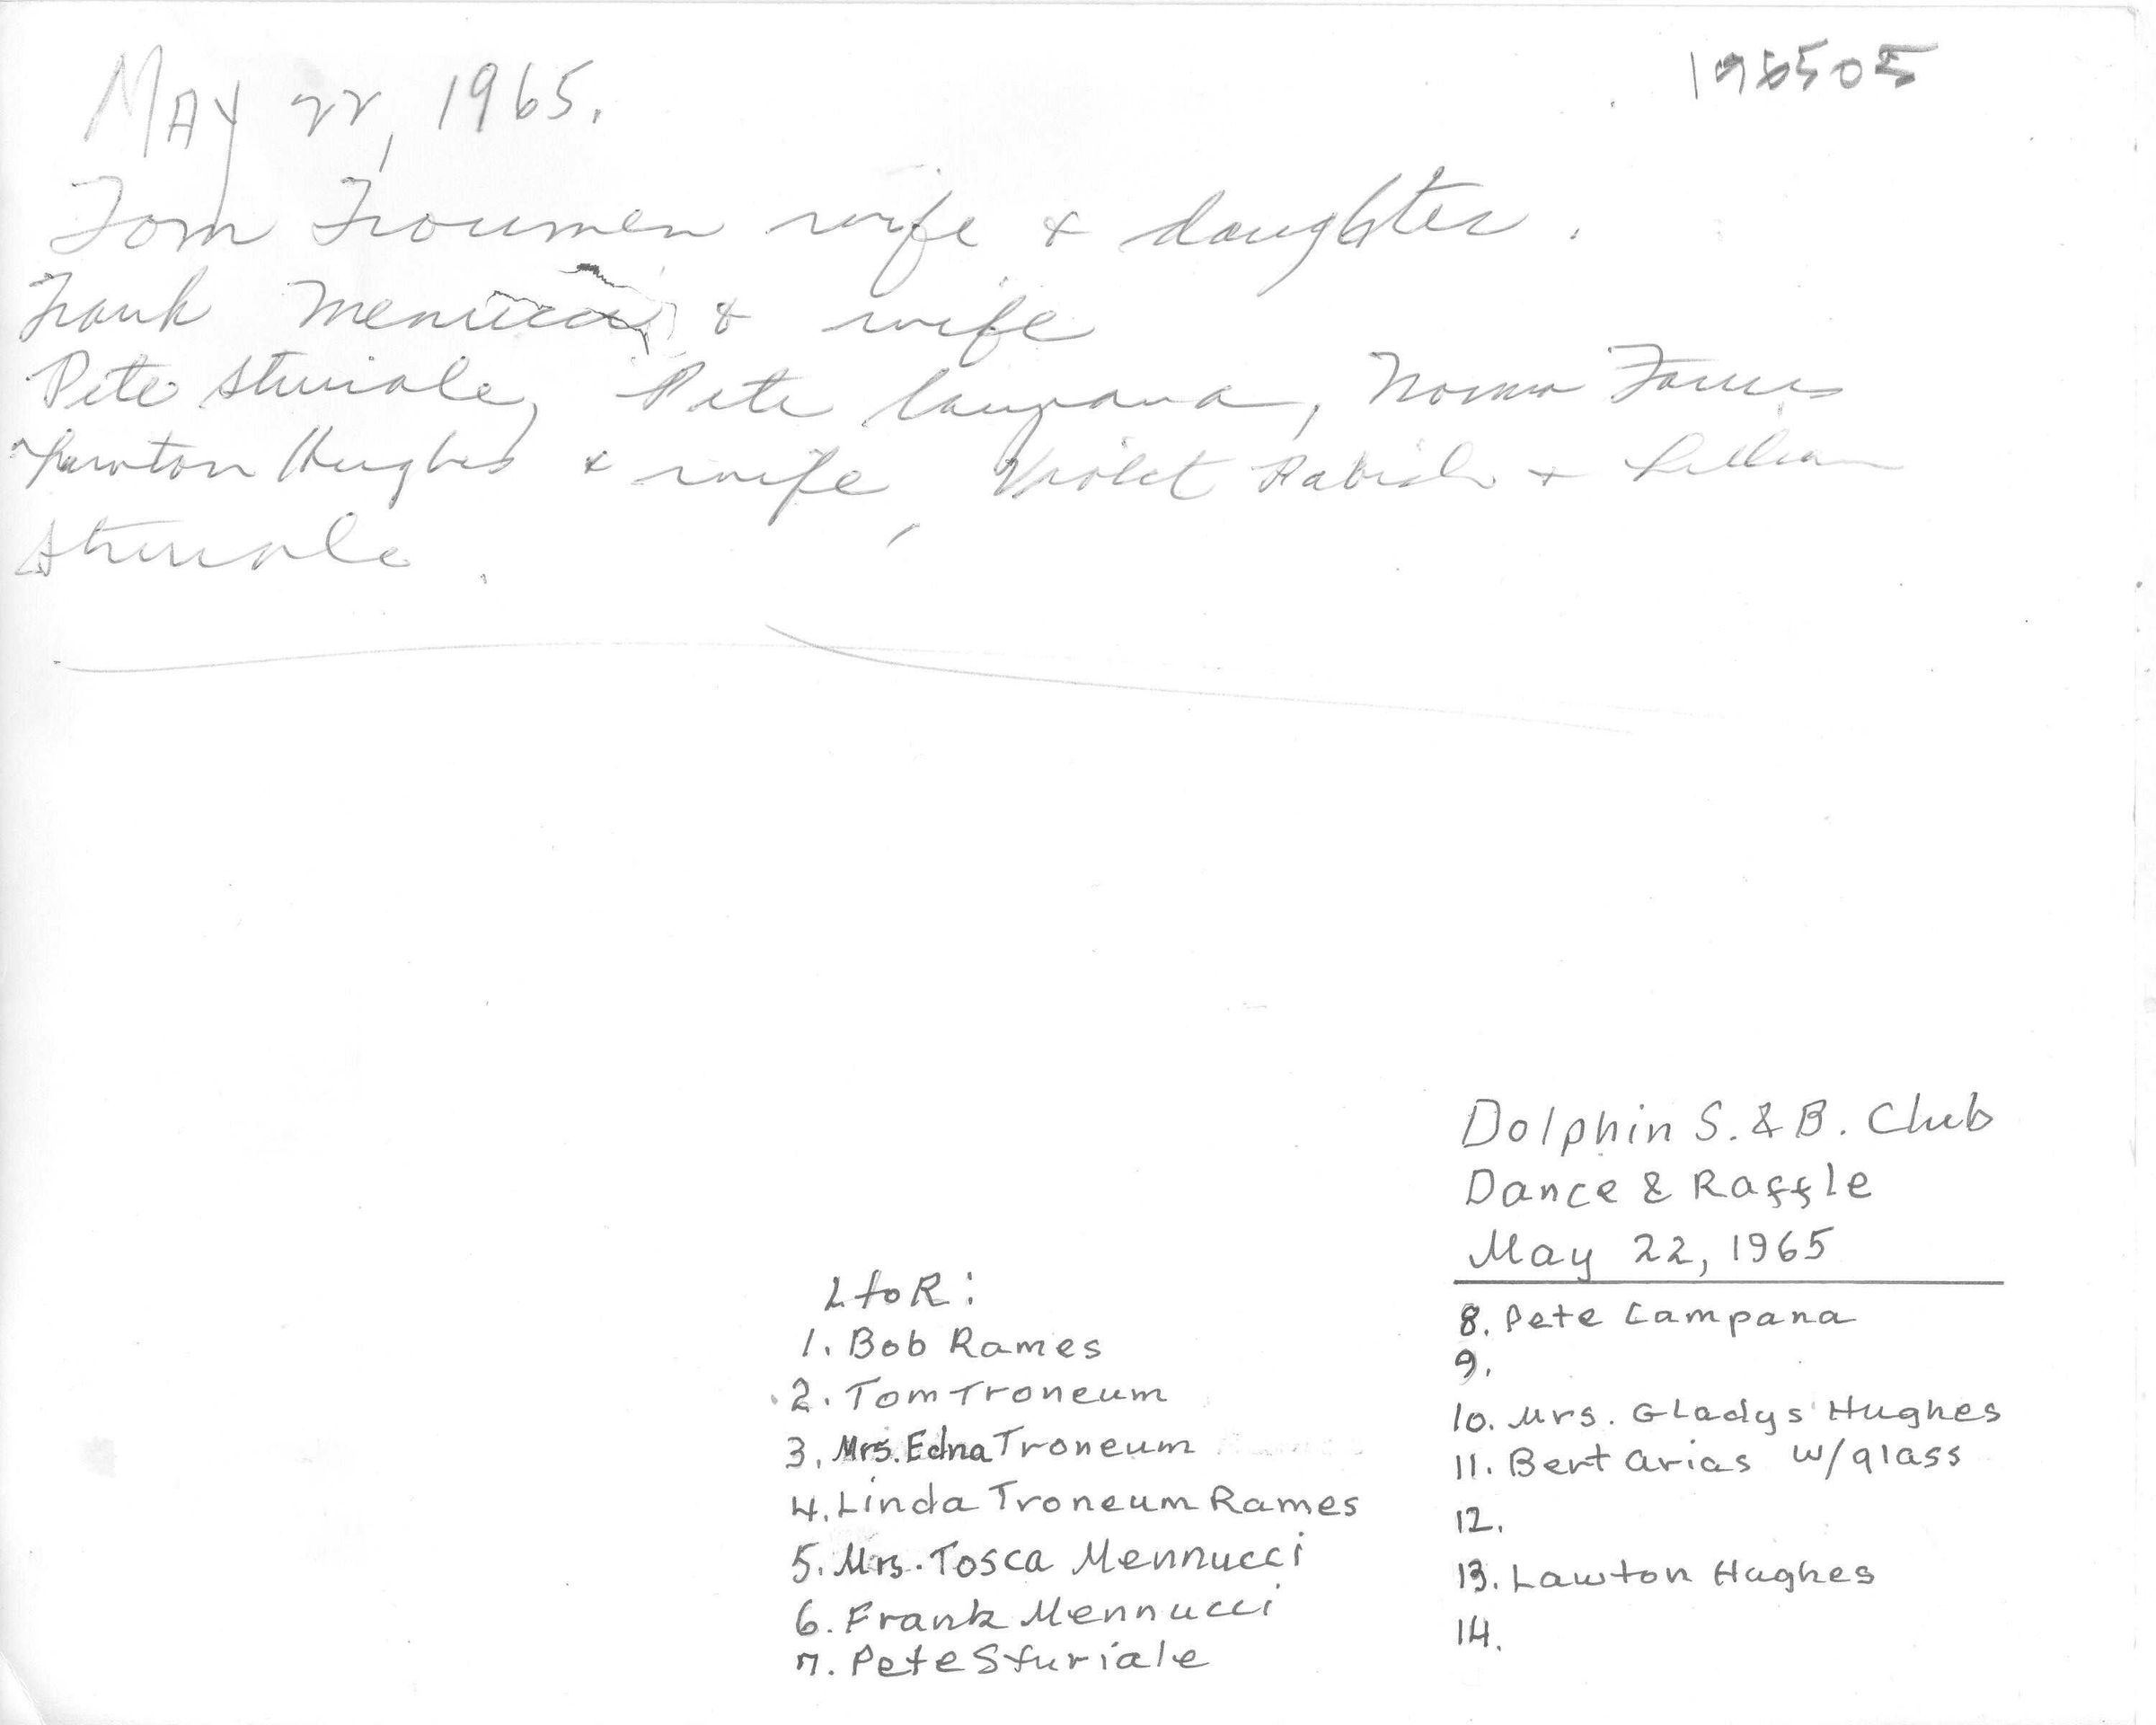 196505
MAY 22, 1965.
Tom Troumen wife & daughter.
Frank Menucci & wife
Pete Sturiale, Pete Campana, Norma
Lawton Hughes & wife, Violet & Lillian
Sturiale.
Dolphin S. & B. Club
Dance & Raffle
May 22, 1965
L to R:
1. Bob Rames
2. Tom Troneum
3. Mrs. Edna Troneum
4. Linda Troneum Rames
5. Mrs. Tosca Mennucci
6. Frank Mennucci
7. Pete Sturiale
8. Pete Campana
9.
10. Mrs. Gladys Hughes
11. Bert Arias w/glass
12.
13. Lawton Hughes
14.